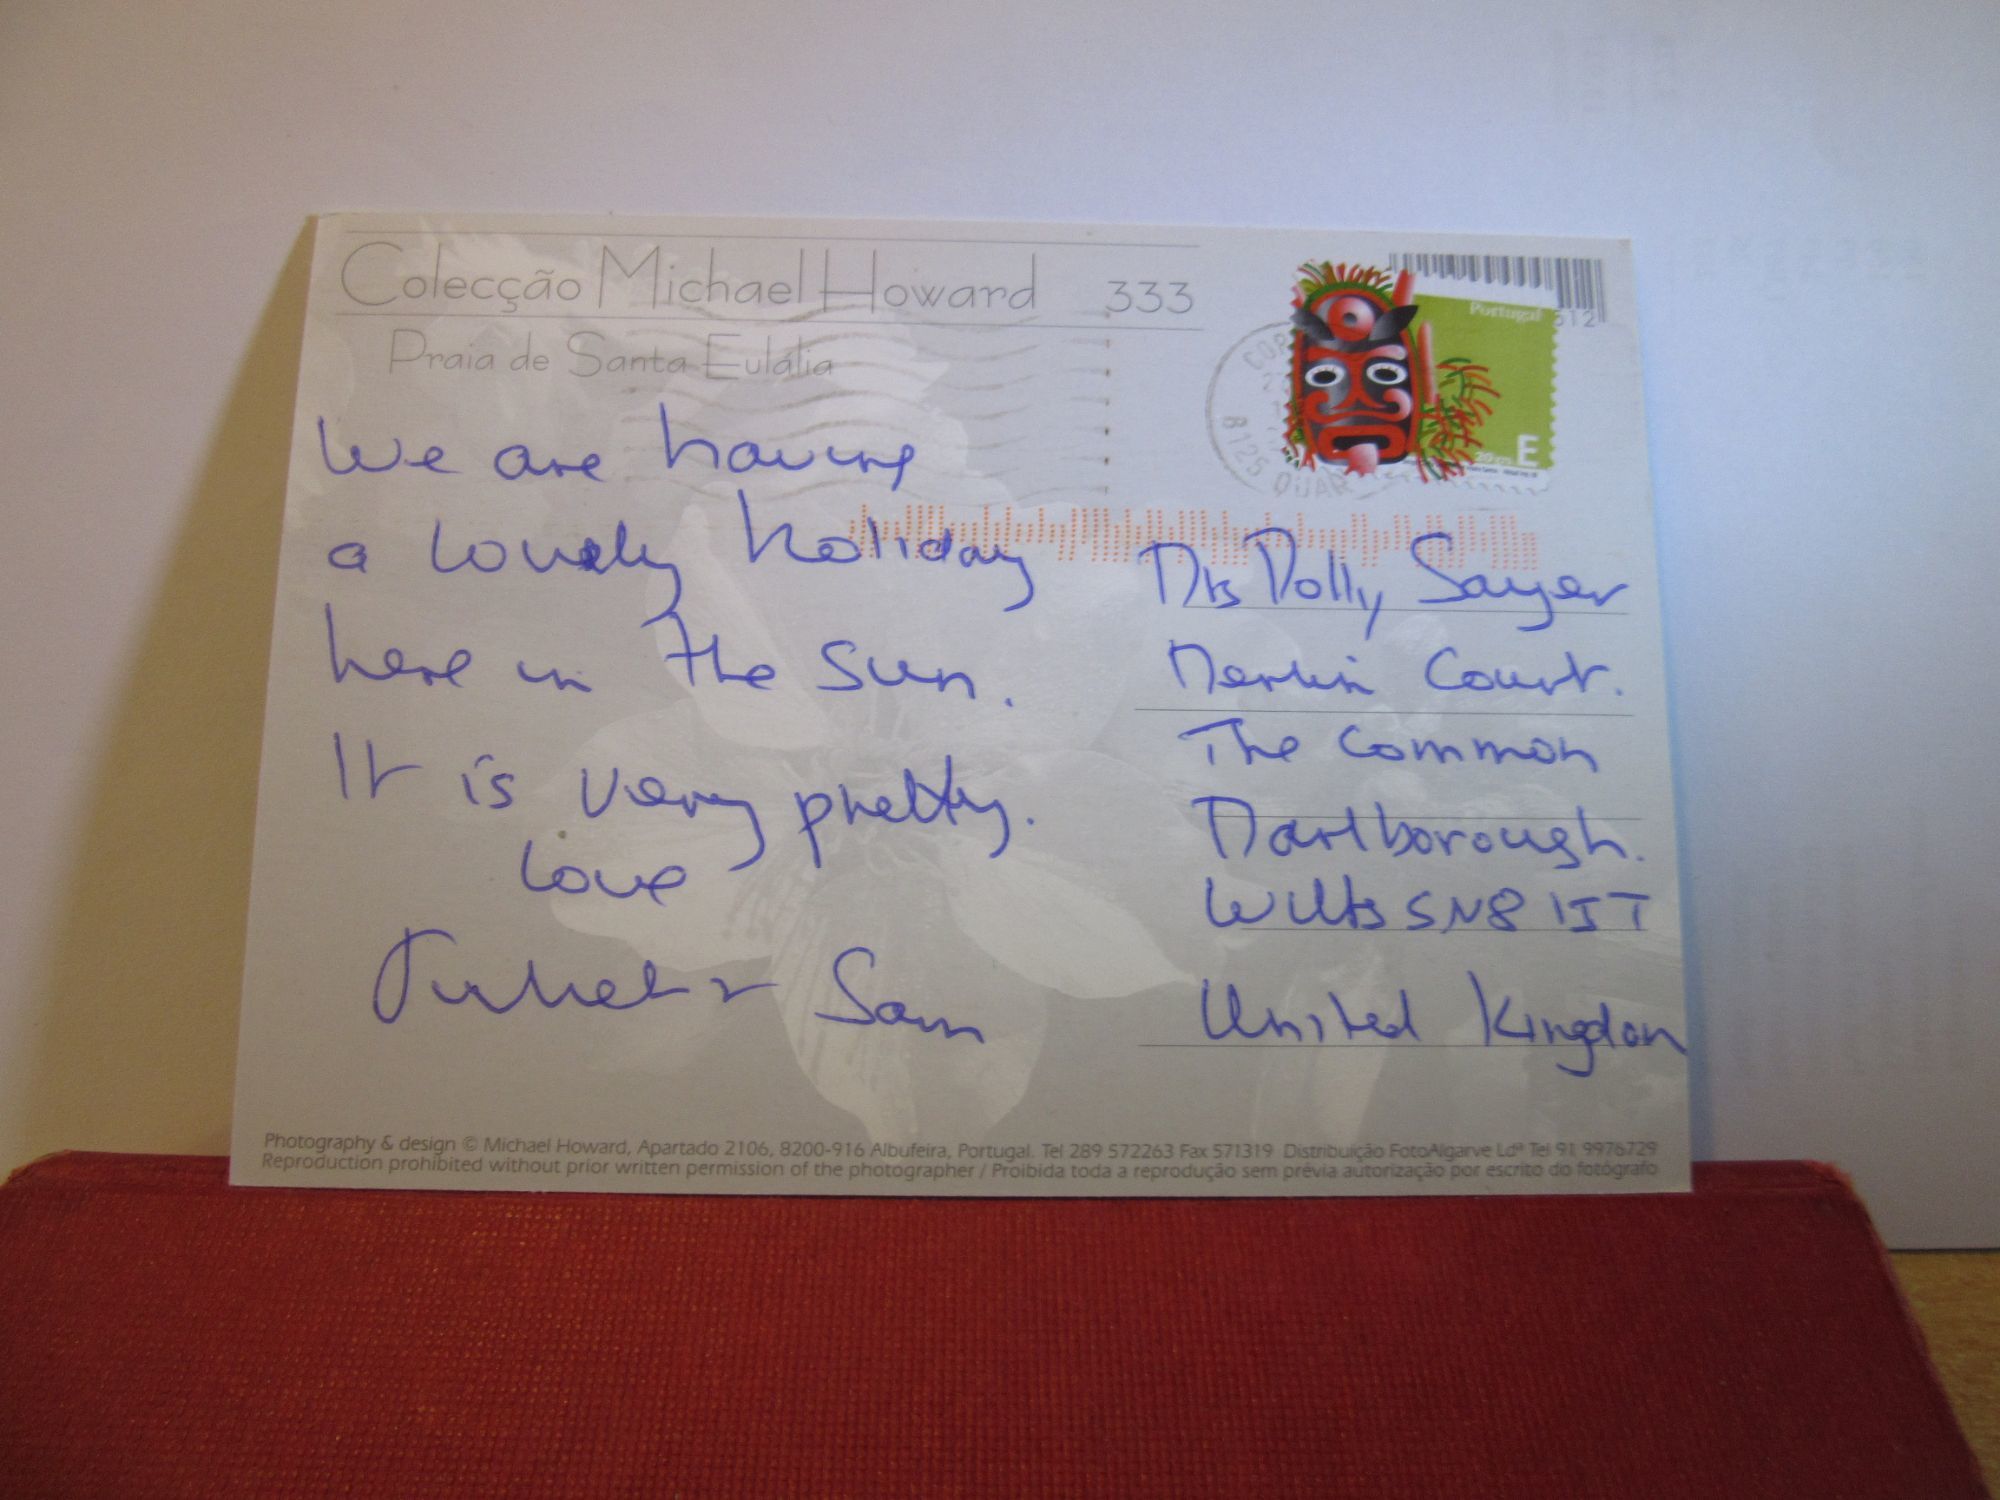 Colecção Michael Howard 333
Praia de Santa Eulália
Portugal
512
E
8125 QUAR
We are having
a lovely holiday
here in the sun.
It is very pretty.
love
Juliet & Sam
Mrs Dolly Sayer
Merlin Court.
The Common
Marlborough.
Wilts SN8 1JT
United Kingdom
Photography & design © Michael Howard, Apartado 2106, 8200-916 Albufeira, Portugal. Tel 289 572263 Fax 571319 Distribuição FotoAlgarve Ldª Tel 91 9976729
Reproduction prohibited without prior written permission of the photographer / Proibida toda a reprodução sem prévia autorização por escrito do fotógrafo